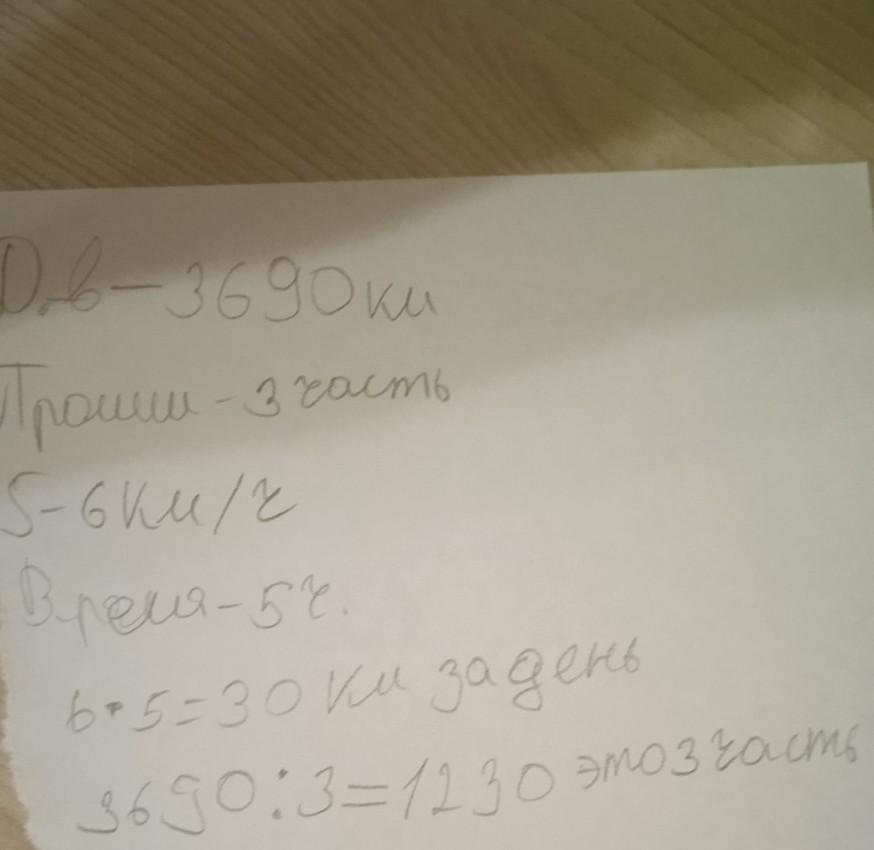 Д.в - 3690 км
Прошли - 3 часть
S - 6 км/ч
Время - 5 ч.
6 • 5 = 30 км за день
3690 : 3 = 1230 это 3 часть